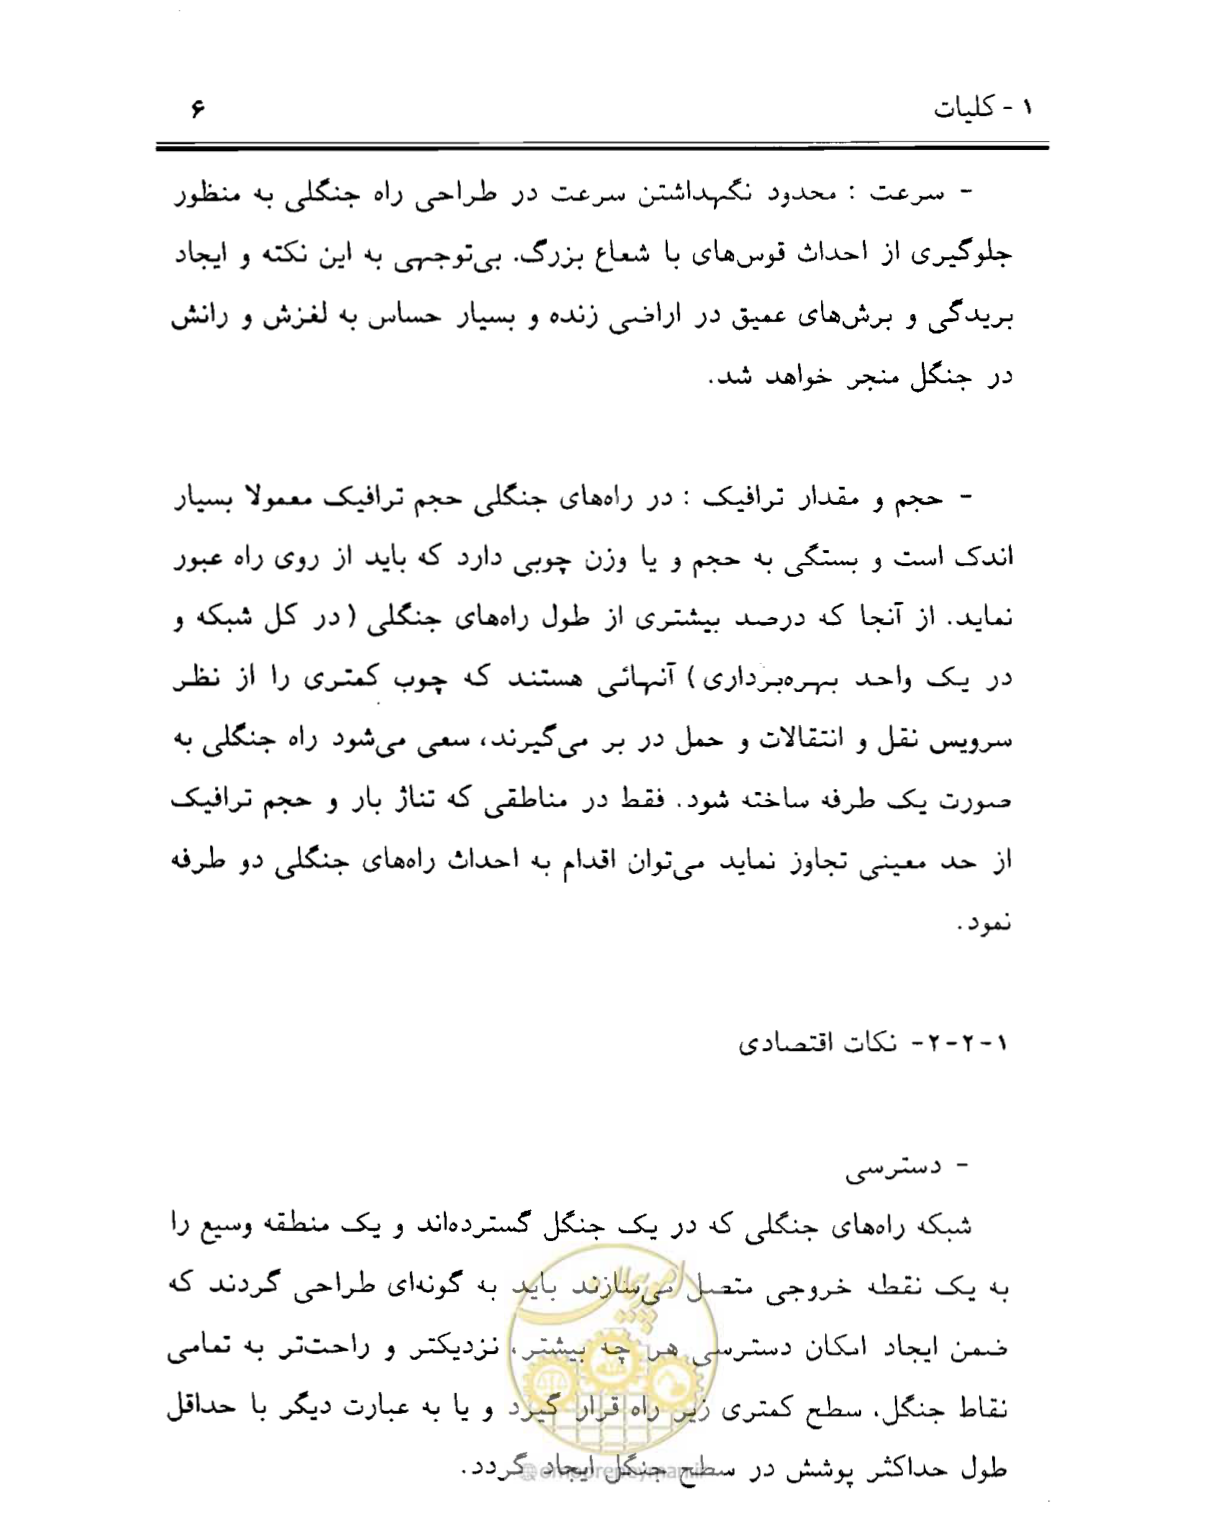 ۱ - کلیات
۶
- سرعت : محدود نگهداشتن سرعت در طراحی راه جنگلی به منظور
جلوگیری از احداث قوس‌های با شعاع بزرگ. بی‌توجهی به این نکته و ایجاد
بریدگی و برش‌های عمیق در اراضی زنده و بسیار حساس به لغزش و رانش
در جنگل منجر خواهد شد.
- حجم و مقدار ترافیک : در راه‌های جنگلی حجم ترافیک معمولا بسیار
اندک است و بستگی به حجم و یا وزن چوبی دارد که باید از روی راه عبور
نماید. از آنجا که درصد بیشتری از طول راه‌های جنگلی (در کل شبکه و
در یک واحد بهره‌برداری) آنهائی هستند که چوب کمتری را از نظر
سرویس نقل و انتقالات و حمل در بر می‌گیرند، سعی می‌شود راه جنگلی به
صورت یک طرفه ساخته شود. فقط در مناطقی که تناژ بار و حجم ترافیک
از حد معینی تجاوز نماید می‌توان اقدام به احداث راه‌های جنگلی دو طرفه
نمود.
۱-۲-۲- نکات اقتصادی
- دسترسی
شبکه راه‌های جنگلی که در یک جنگل گسترده‌اند و یک منطقه وسیع را
به یک نقطه خروجی متصل می‌سازند باید به گونه‌ای طراحی گردند که
ضمن ایجاد امکان دسترسی هر چه بیشتر، نزدیکتر و راحت‌تر به تمامی
نقاط جنگل، سطح کمتری زیر راه قرار گیرد و یا به عبارت دیگر با حداقل
طول حداکثر پوشش در سطح جنگل ایجاد گردد.
امور پیمان